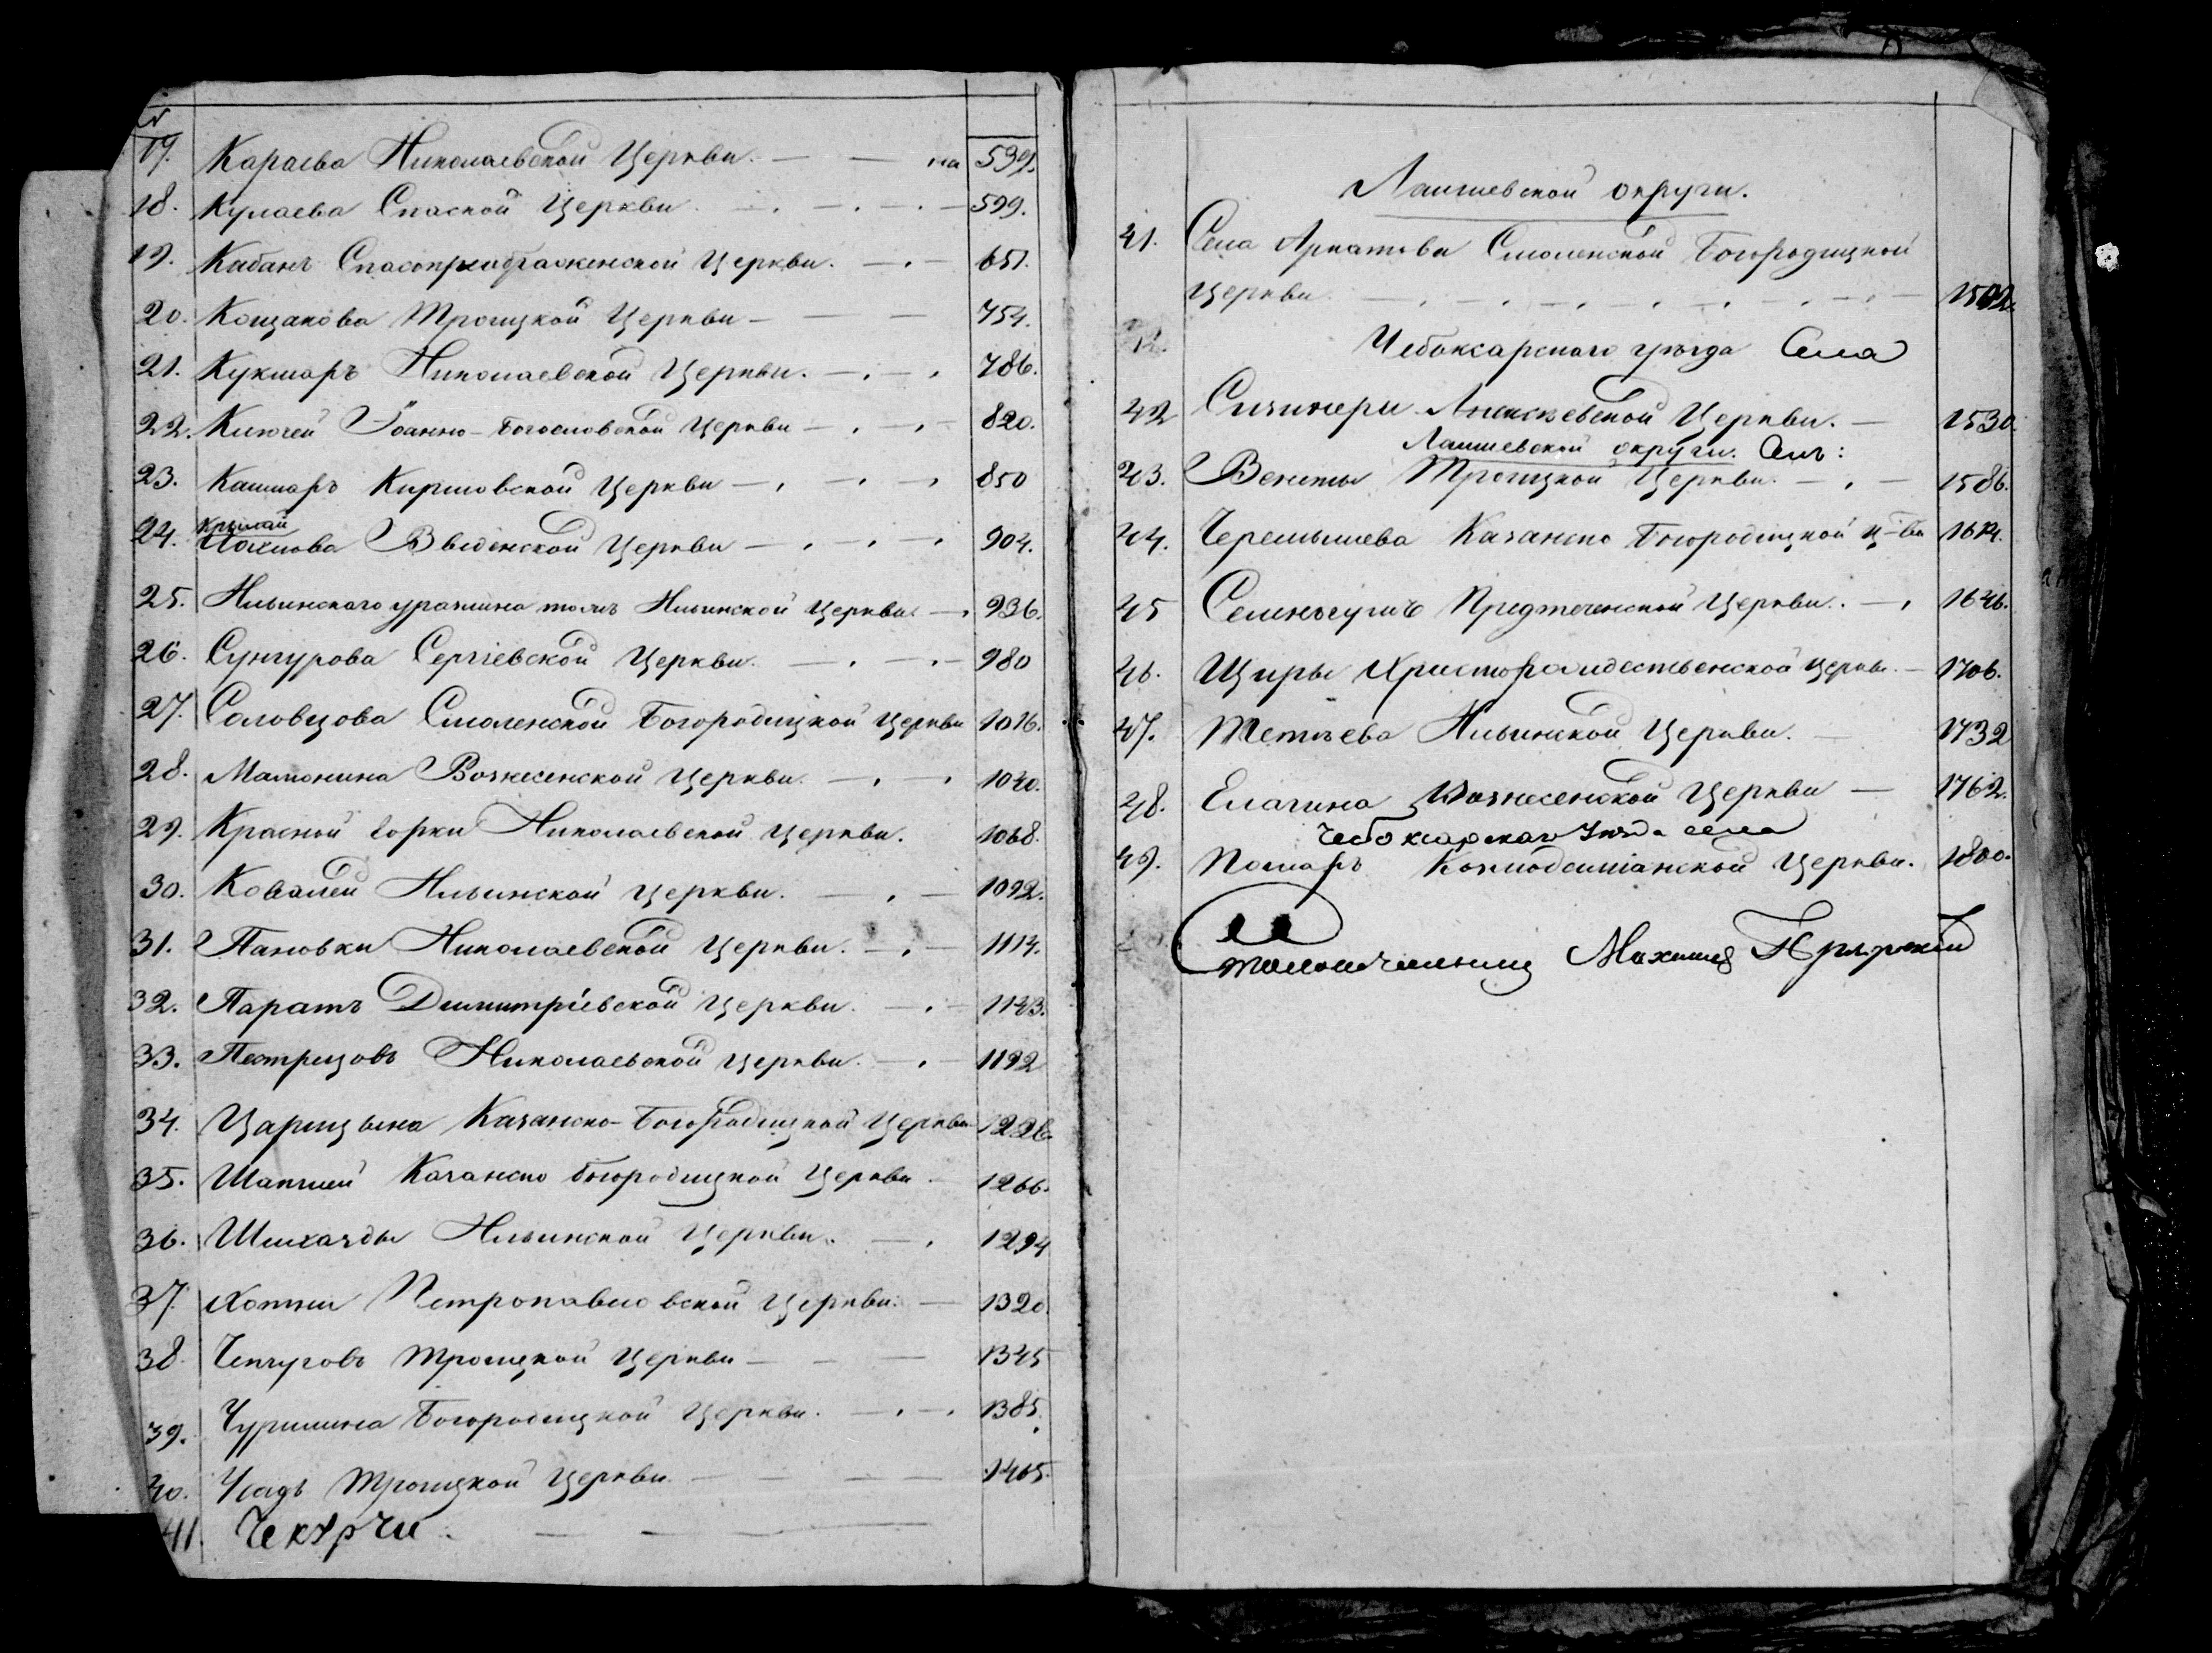 17. Караева Николаевской Церкви. — — на 599.
18. Кулаева Спаской Церкви — 599.
19. Кабанъ Спасопреображенской Церкви. — 651.
20. Кощакова Троицкой Церкви — 754.
21. Кукморъ Николаевской Церкви. — 786.
22. Ключей Іоанно-Богословской Церкви — 820.
23. Кашмаръ Церкви — 850
24. Введенской Церкви — 904.
25. Ильинской Церкви — 936.
26. Сунгурова Сергіевской Церкви. — 980
27. Соловцова Смоленской Богородицкой Церкви 1016.
28. Мамонина Вознесенской Церкви. — 1040.
29. Красной Горки Николаевской Церкви. 1068.
30. Ковалей Ильинской Церкви. — 1092.
31. Пановки Николаевской Церкви. — 1114.
32. Паратъ Димитріевской Церкви. — 1143.
33. Пестрецовъ Николаевской Церкви. — 1192
34. Царицына Казанско-Богородицкой Церкви 1226.
35. Шапшей Казанско Богородицкой Церкви 1266.
36. Шигазды Ильинской Церкви. — 1294
37. Хотни Петропавловской Церкви. — 1320.
38. Чепчуговъ Троицкой Церкви — 1345
39. Чурилина Богородицкой Церкви. — 1385.
40. Усадъ Троицкой Церкви — 1465.
41. Чекурчи — — —
Лаишевской округи.
41. Села Арпатова Смоленской Богородицкой
Церкви — 1502.
Чебоксарскаго уѣзда Села
42 Церкви. — 1530.
Лаишевской округи. Селъ:
43. Венеты Троицкой Церкви. — 1586.
44. Черемышева Казанско Богородицкой ц-ви 1614.
45 Предтеченской Церкви. — 1646.
46. Щиры Христорождественской Церкви. — 1706.
47. Тетѣева Ильинской Церкви. — 1732
48. Елагина Вознесенской Церкви — 1762.
Чебоксарскаго Уѣзда села
49. Помаръ Козмодеміанской Церкви. 1800.
Столоначальникъ